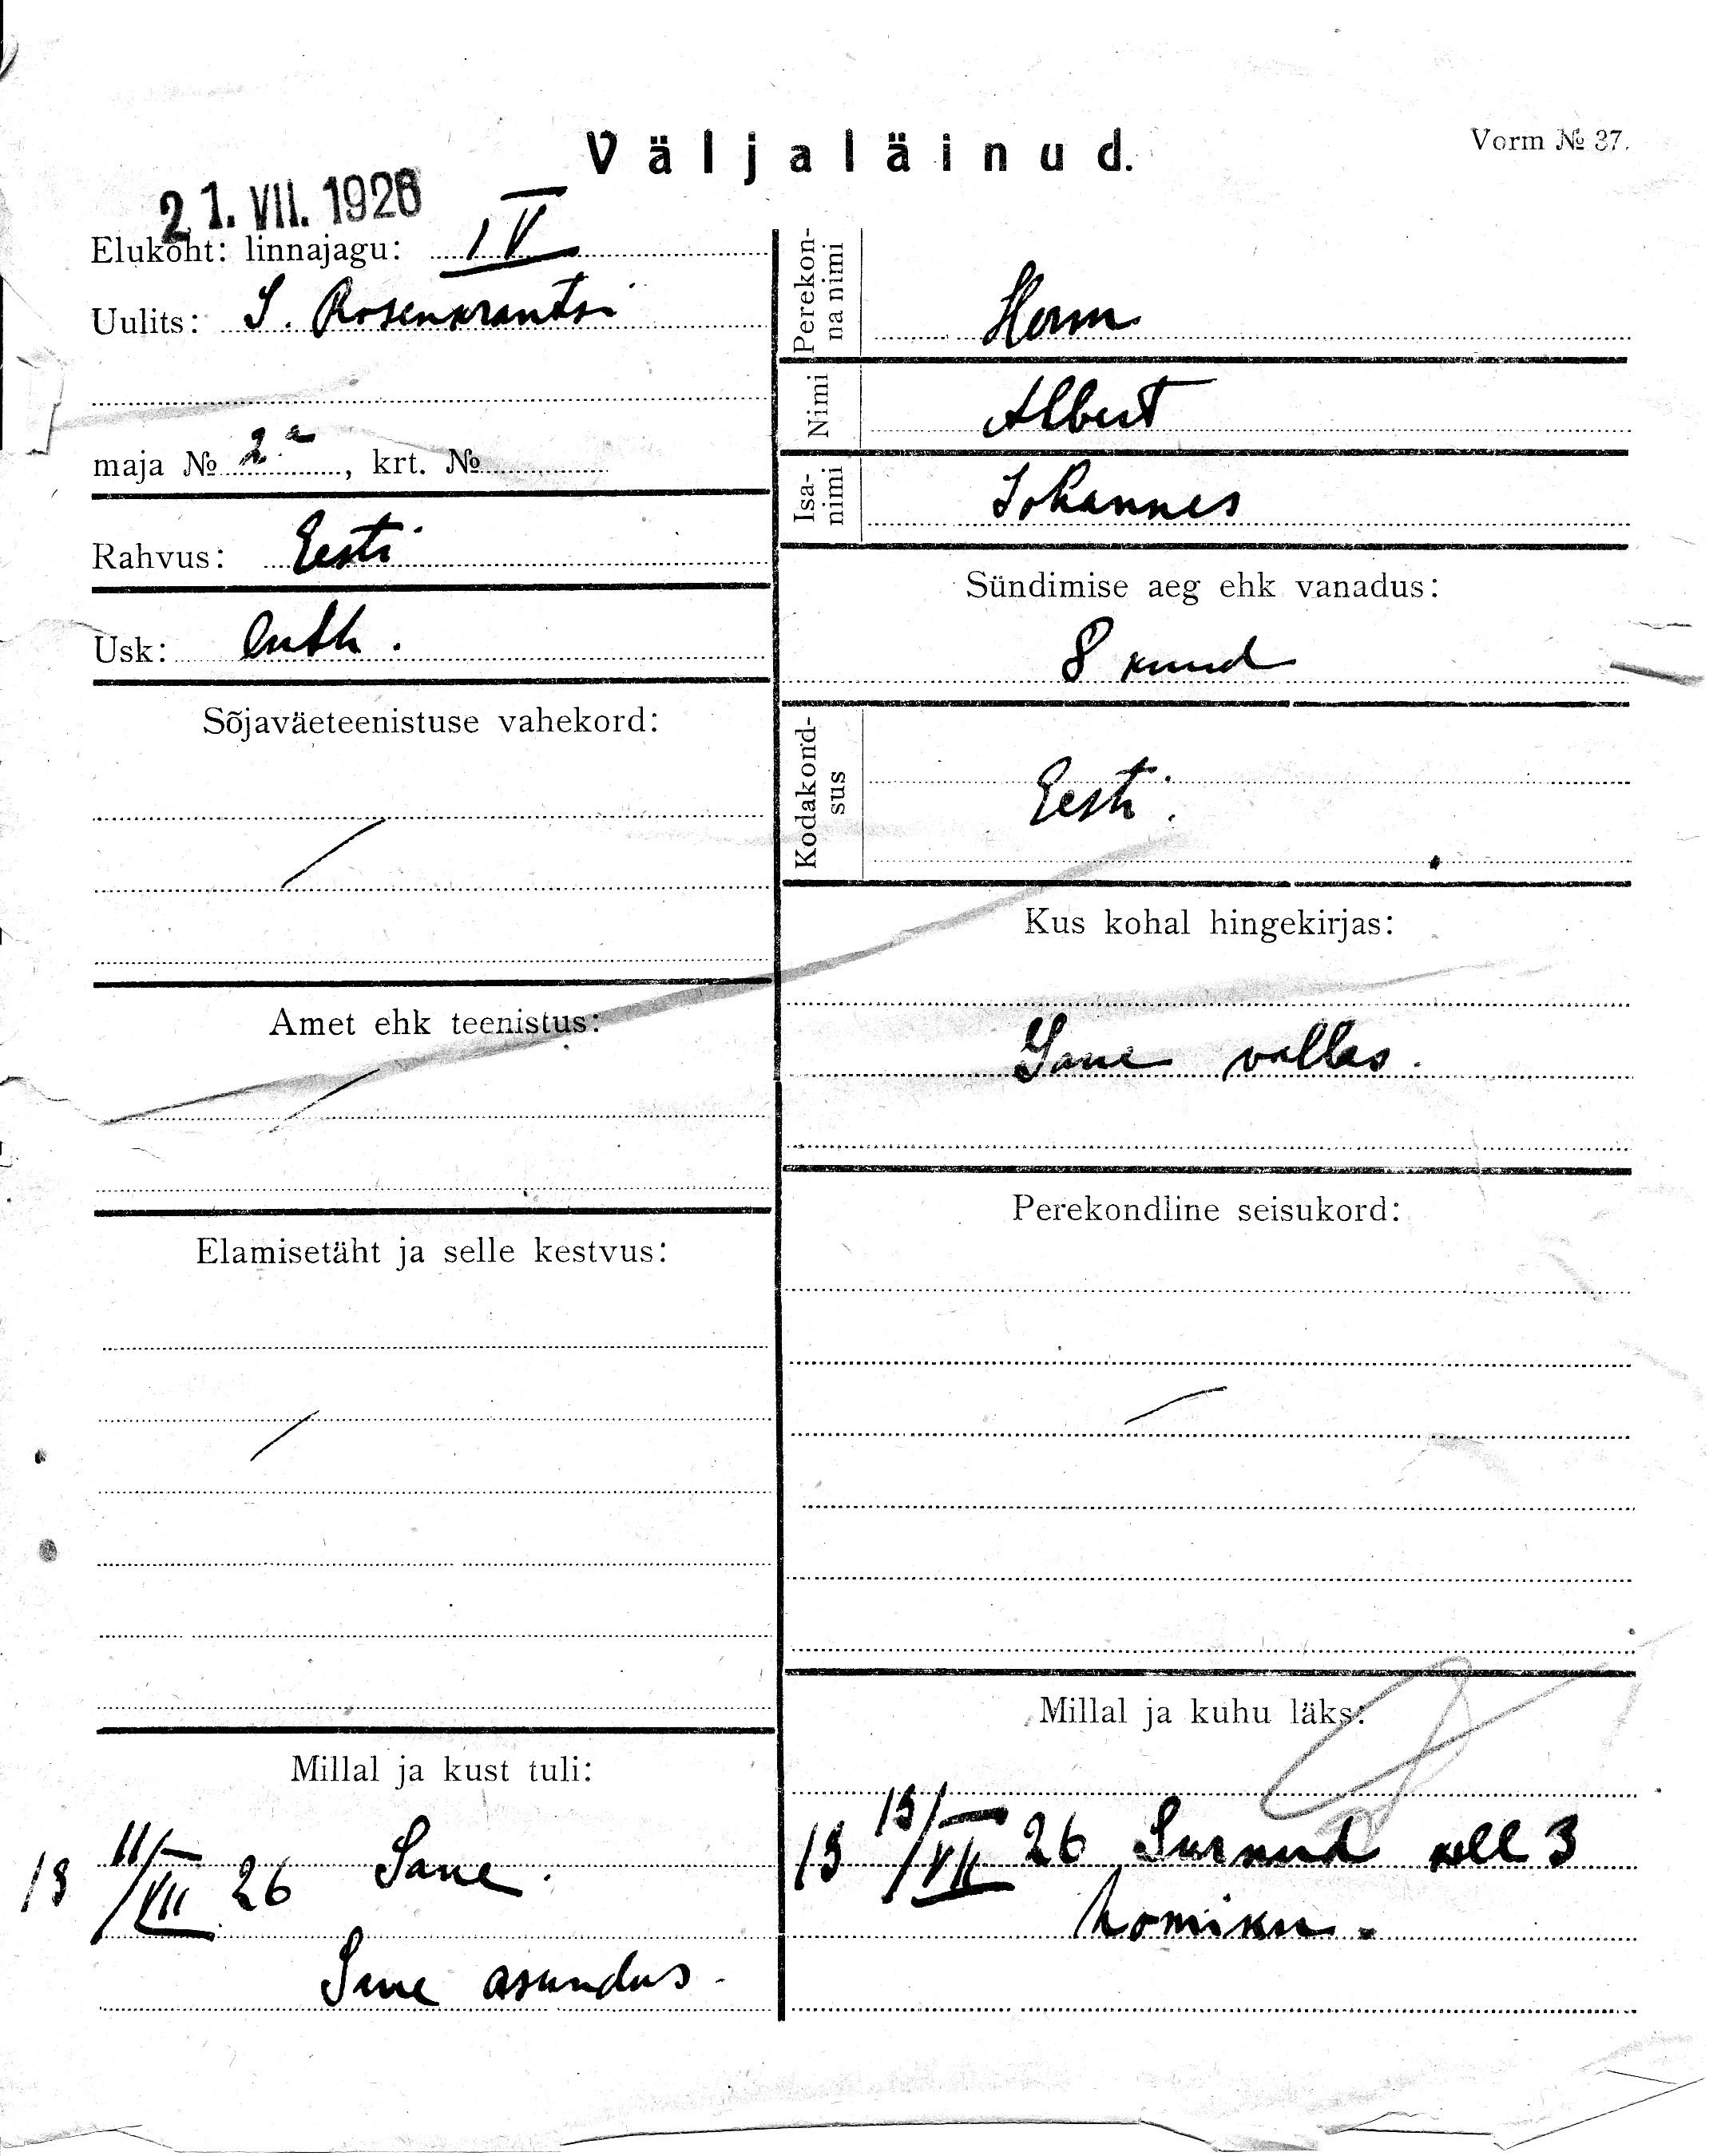 Väljaläinud.
Vorm № 37.
21. VII. 1926
Elukoht: linnajagu: IV
Uulits: S. Rosenkrantsi
maja № 2a, krt. №
Rahvus: Eesti
Usk: luth.
Sõjaväeteenistuse vahekord:
/
Amet ehk teenistus:
/
Elamisetäht ja selle kestvus:
/
Millal ja kust tuli:
19 11/VII 26 Saue.
Saue asundus.
Perekon-
na nimi
Herm
Nimi Albert
Isa-
nimi
Johannes
Sündimise aeg ehk vanadus:
8 kuud
Kodakond-
sus
Eesti.
Kus kohal hingekirjas:
Saue vallas.
Perekondline seisukord:
/
Millal ja kuhu läks:
19 13/VII 26 Surnud kell 3
homiku.